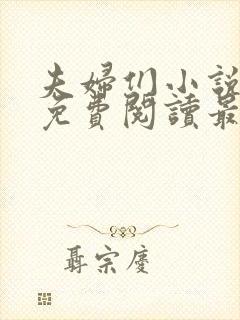 夫婦们小說
免費閱讀最
聶宗慶